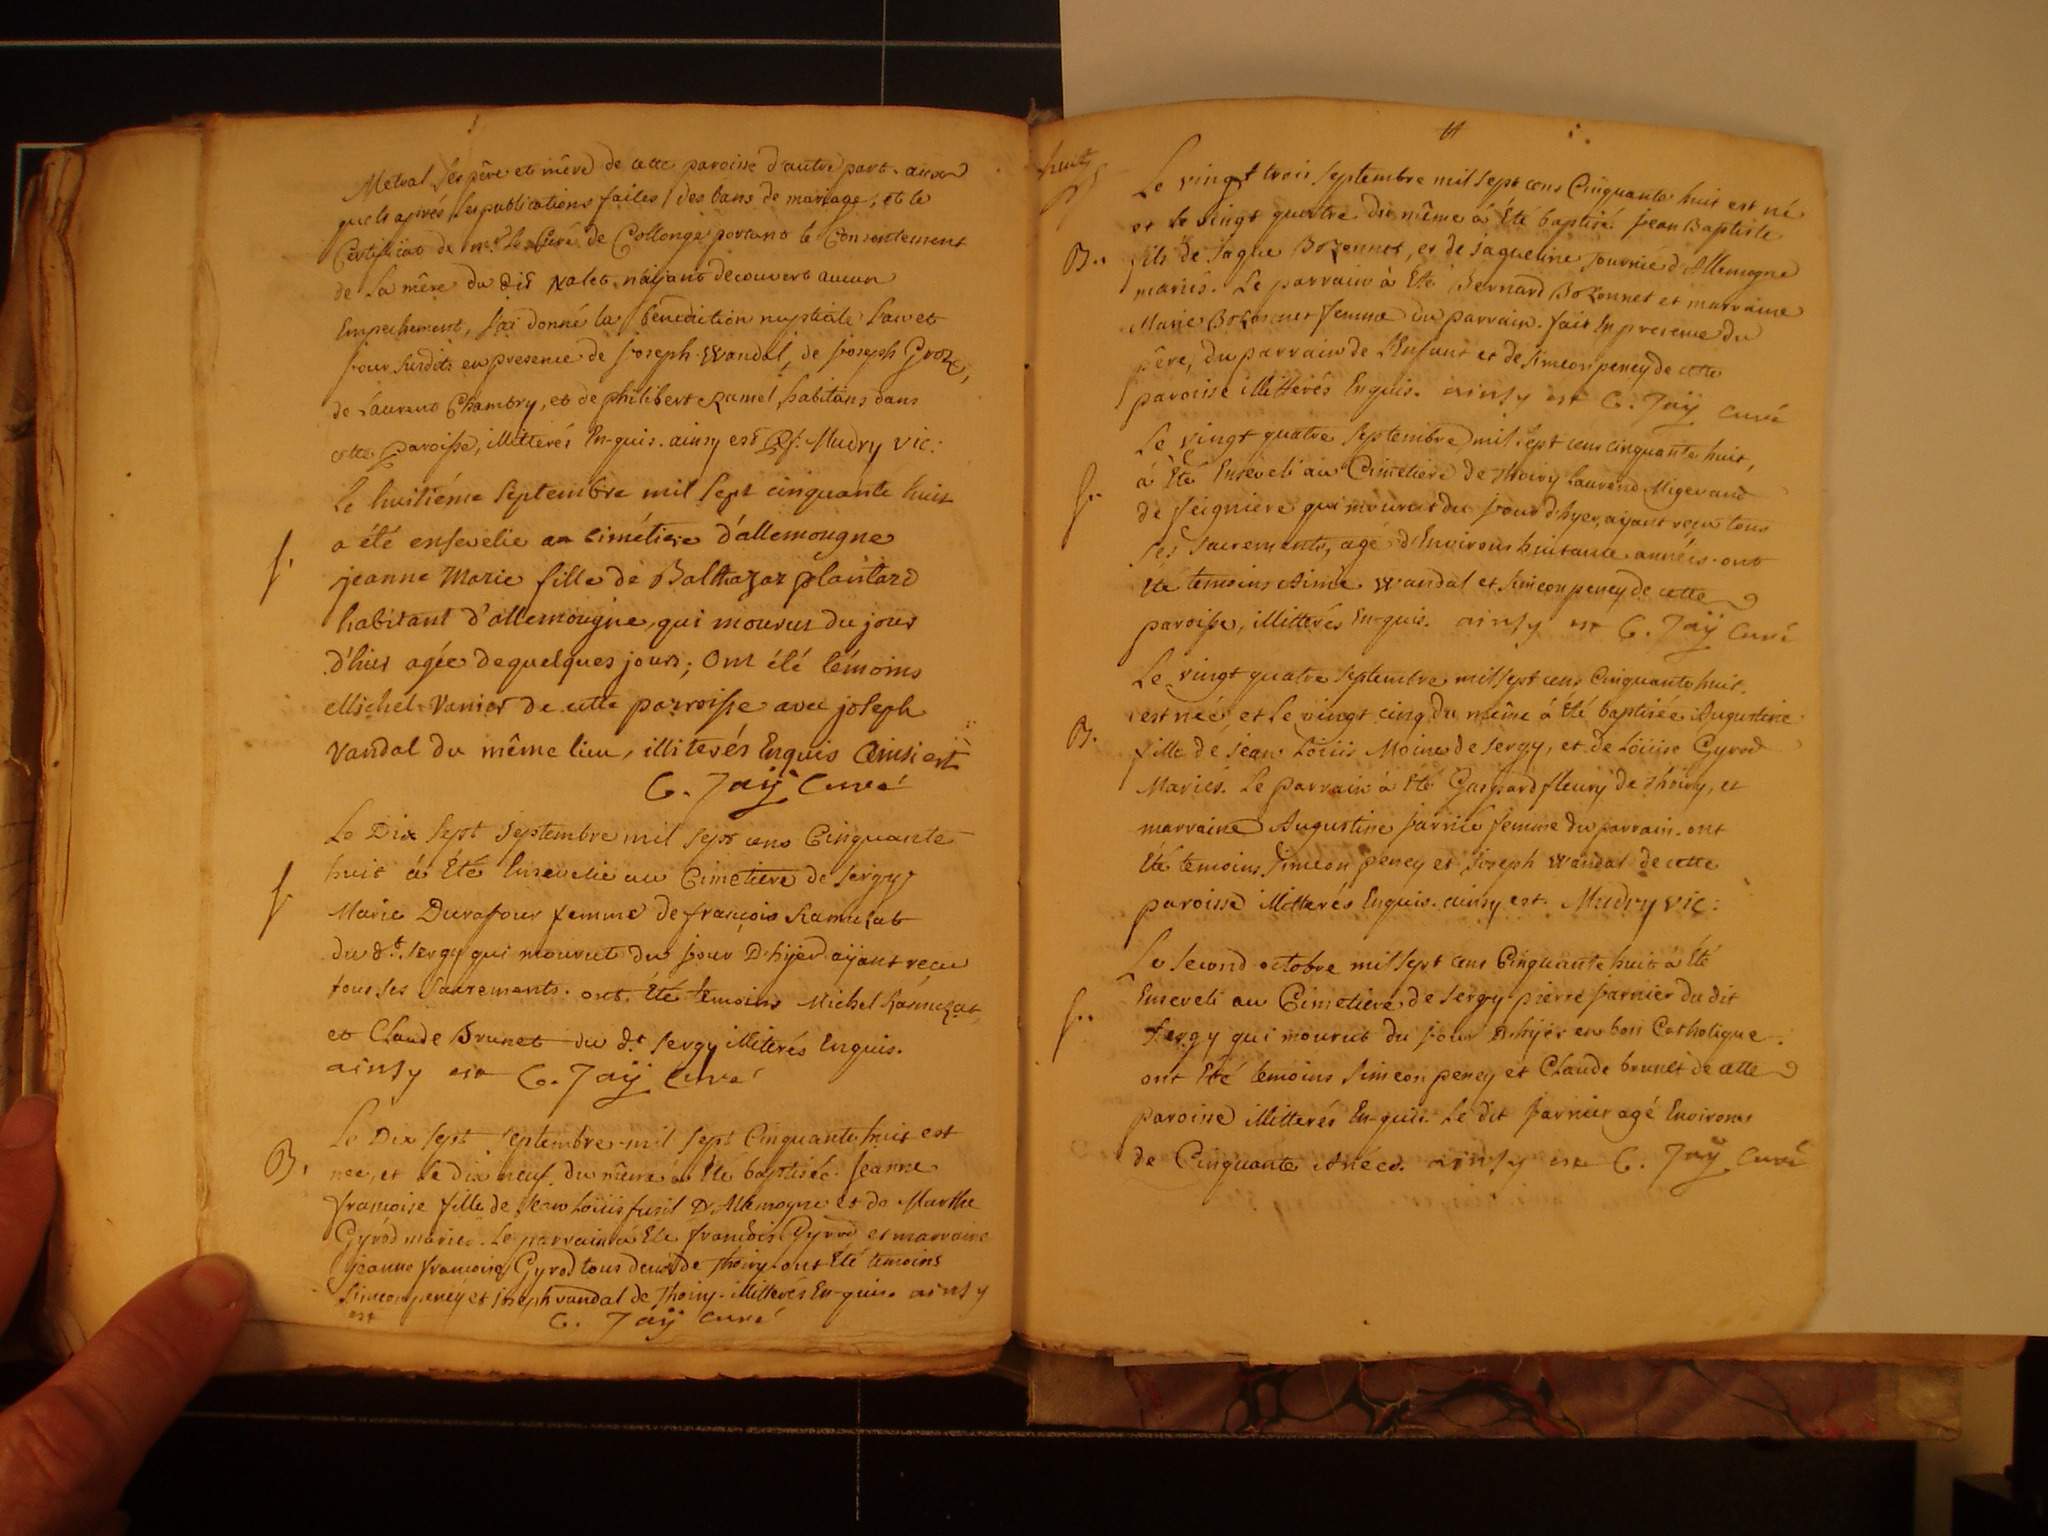 Metral ses père et mère de cette paroisse d'autre part. aux
quels après les publications faites des bans de mariage, et le
Certificat de mr. Le Curé de Collonge portant le Consentement
de La mère du dit Valet, n'aijant decouvert aucun
Empechement, J'ai donné la benediction nuptiale Lan et
Jour susdits en presence de Joseph Wandal, de Joseph Groz,
de Laurent Chambry, et de philibert Ramel, habitans dans
cette paroisse, illitterés En-quis. ainsy est Mudry vic:
Le huitiéme Septembre mil Sept cinquante huit
f.
a été ensevelie au cimétiere d'allemougne
jeanne Marie fille de Balthazar plantard
habitant d'allemougne, qui mourut du jour
d'hier agée de quelques jours; Ont été témoins
Michel Vanier de cette parroisse avec joseph
Vandal du même lieu, illiterés Enquis Ainsi est
C. Jaÿ Curé
Le Dix Sept Septembre mil sept cens Cinquante
f
huit à Eté Ensevelie au Cimetiere de Sergy
Marie Durafour femme de françois Ramuzat
du dt. Sergy qui mourut du jour D'hijer aijant reçu
tous les Sacrements. ont Eté temoins Michel Ramuzat
et Claude Brunet du dt Sergy illiterés Enquis.
ainsy est C. Jaÿ Curé
Le Dix Sept Septembre mil Sept Cinquante huit est
B.
née, et le Dix neuf du même à Eté baptisée Jeanne
françoise fille de Jean Loüis fusil D'Allemogne et de Marthe
Gyrod mariés. Le parrain à Eté françois Gyrod et marraine
jeanne françoise Gyrod tous deux de Thoiry. ont Eté temoins
Simeon peney et joseph vandal de Thoiry. illitterés En-quis. ainsy
est C. Jaÿ curé
huit
Le vingt trois Septembre mil Sept cens Cinquante huit est né
et le vingt quatre du même à Eté baptisé Jean Baptiste
B..
fils de Jaque Bozonnet, et de Jaqueline Journié d'Allemogne
mariés. Le parrain à Eté Bernard Bozonnet et marraine
Marie Bozonnet femme du parrain. fait En presence du
père, du parrain de L'Enfant et de Simeon peney de cette
paroisse illitterés Enquis. ainsy est C. Jaÿ curé
Le vingt quatre Septembre mil Sept cens cinquante huit,
f..
à Eté Enseveli au Cimetiere de Thoiry Laurend Migevand
de feigniere qui mourut du jour d'hyer, aijant reçu tous
ses Sacrements, agé d'Environ huitante années. ont
Eté temoins Aimé Wandal et Simeon peney de cette
paroisse, illitterés Enquis. ainsy est C. Jaÿ Curé
Le vingt quatre Septembre mil Sept cens Cinquante huit.
est née et Le vingt cinq du même à Eté baptisée Augustine
B.
fille de Jean Loüis Moine de Sergy, et de Loüise Gyrod
Mariés. Le parrain à Eté Gaspard fleury de Thoiry, et
marraine Augustine farnie femme du parrain. ont
Eté temoins Simeon peney et Joseph Wandal de cette
paroisse illitterés Enquis. ainsy est. Mudry vic:
Le Second octobre mil Sept cens Cinquante huit à Eté
f..
Enseveli au Cimetiere de Sergy pierre farnier du dit
Sergy qui mourut du jour D'hijer en bon Catholique.
ont Eté temoins Simeon peney et Claude brunet de cette
paroisse illitterés En-quis. Le dit farnier agé Environ
de Cinquante Anées. ainsy est C. Jaÿ Curé